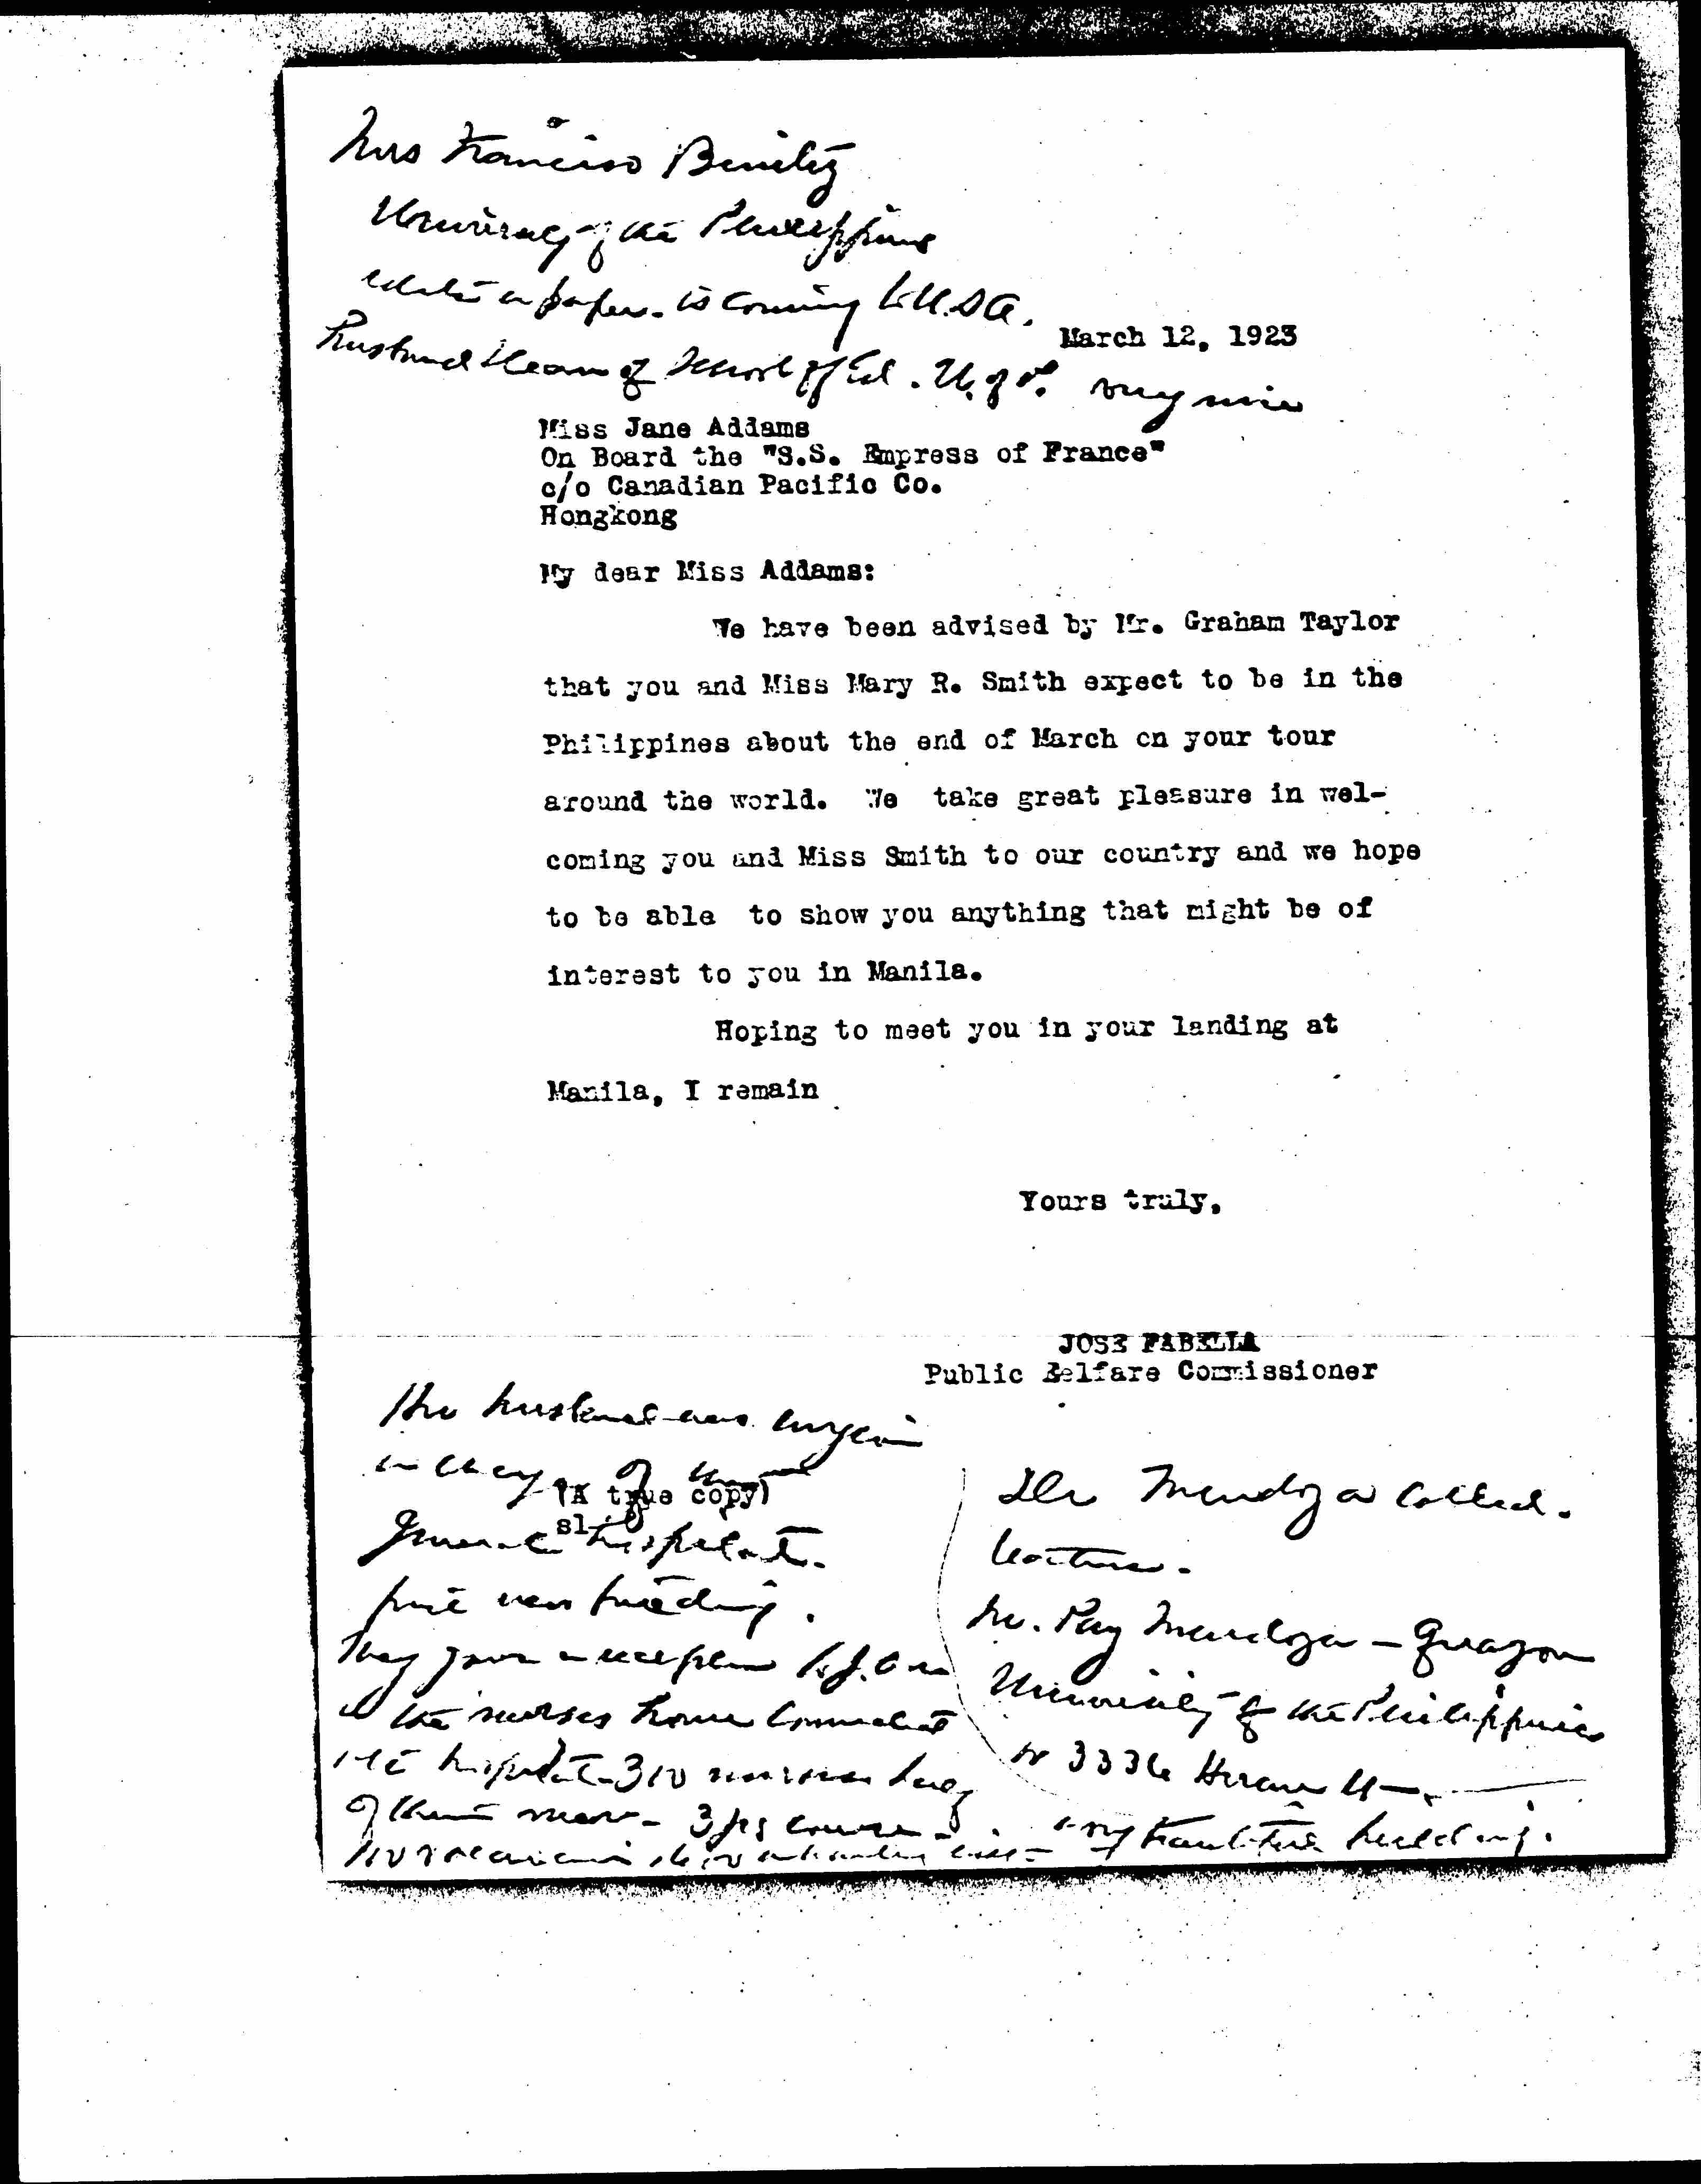 Mrs Francisco Benitez
University of the Philippines
edits a paper. is coming to U.S.A.
husband Dean of School of Ed. U. of P. very nice
March 12, 1923
Miss Jane Addams
On Board the "S.S. Empress of France"
c/o Canadian Pacific Co.
Hongkong
My dear Miss Addams:
We have been advised by Mr. Graham Taylor
that you and Miss Mary R. Smith expect to be in the
Philippines about the end of March on your tour
around the world. We take great pleasure in wel-
coming you and Miss Smith to our country and we hope
to be able to show you anything that might be of
interest to you in Manila.
Hoping to meet you in your landing at
Manila, I remain
Yours truly,
JOSE FABELLA
Public Welfare Commissioner
husband was surgeon
in
(A true copy)
sl
General Hospital.
They gave a reception to J.A.
in the nurses home connected
hospital - 310 nurses
of them men - 3 yrs course -
Dr Mendoza called.
Mendoza - Guazon
University of the Philippines
or 3336 Herran St.
building.